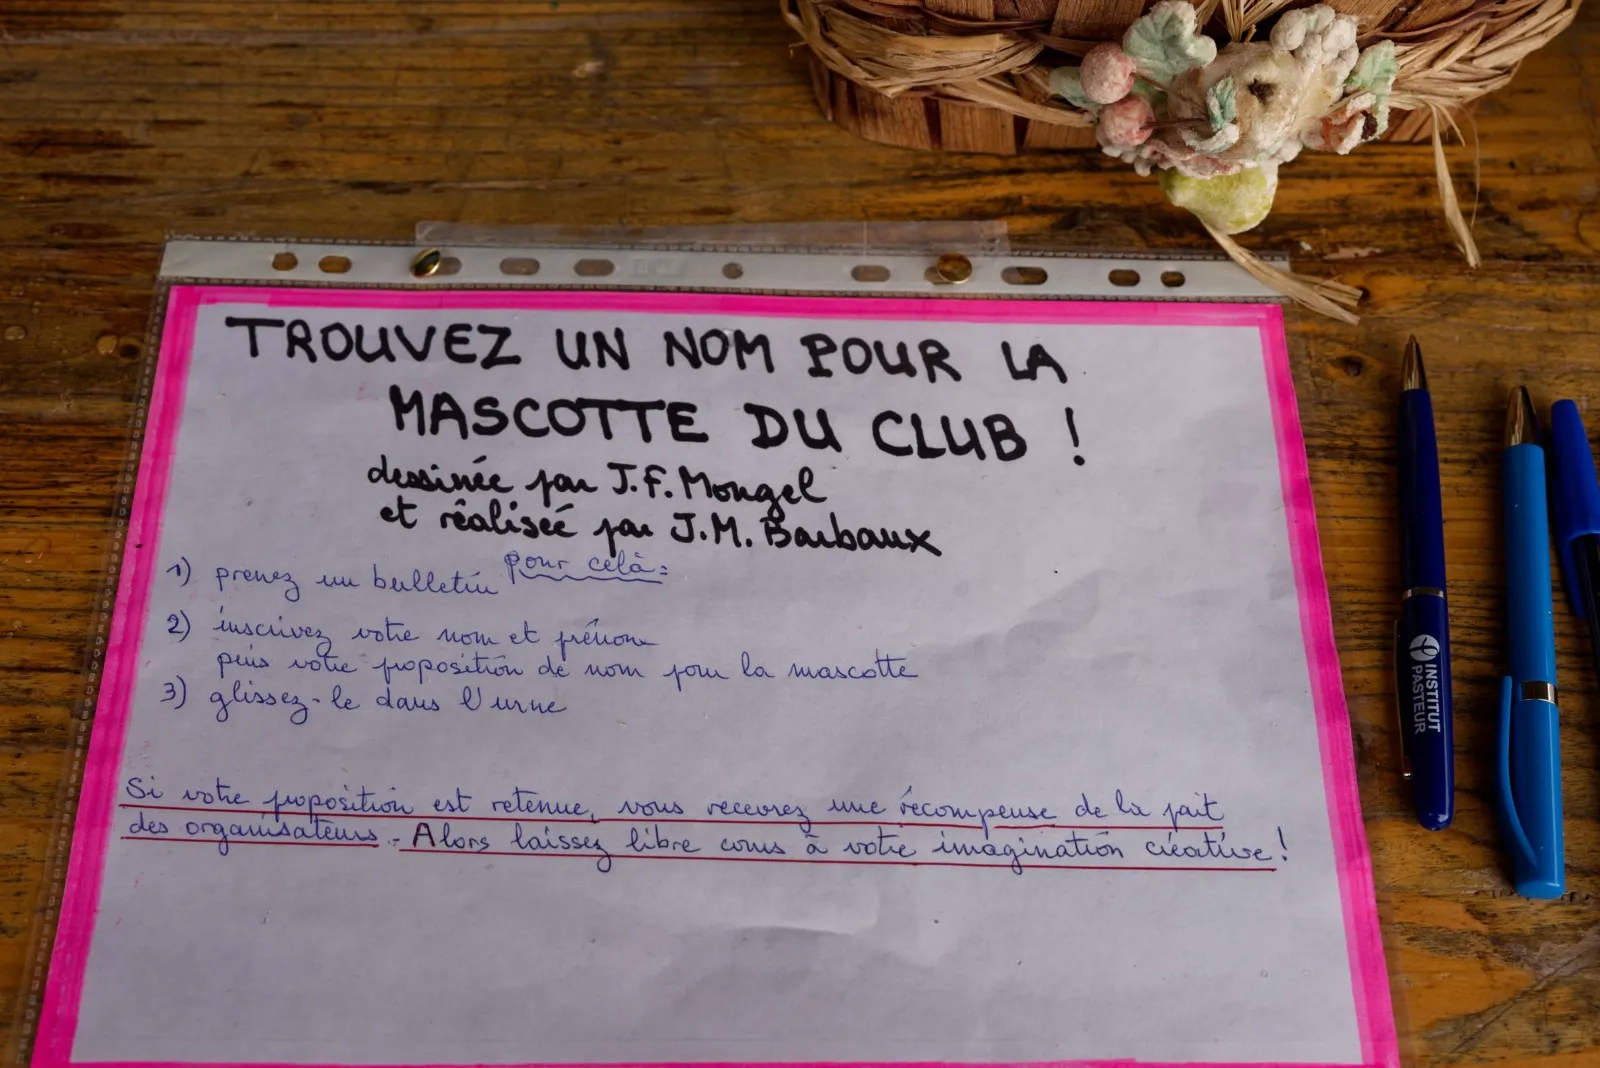 TROUVEZ UN NOM POUR LA
MASCOTTE DU CLUB !
dessinée par J.F. Mongel
et réalisée par J.M. Barbaux
pour celà :
1) prenez un bulletin
2) inscrivez votre nom et prénom
puis votre proposition de nom pour la mascotte
3) glissez-le dans l'urne
Si votre proposition est retenue, vous recevrez une récompense de la part
des organisateurs - Alors laissez libre cours à votre imagination créative !
INSTITUT
PASTEUR